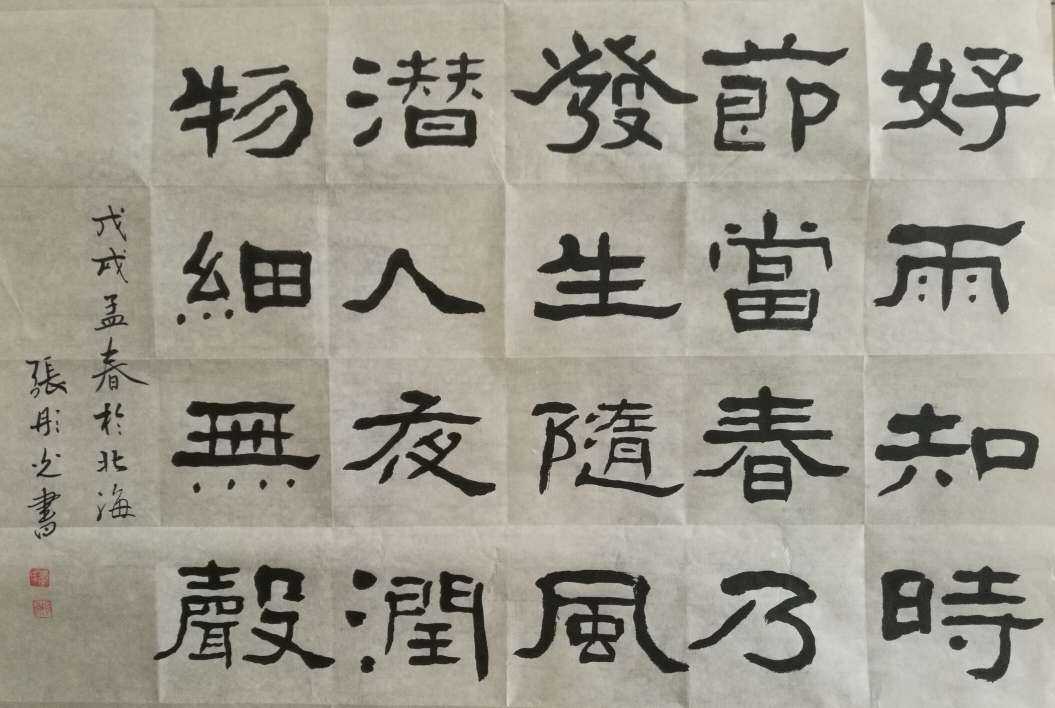 好雨知時
節當春乃
發生隨風
潛人夜潤
物細無聲
戊戌孟春於北海
張彤光書